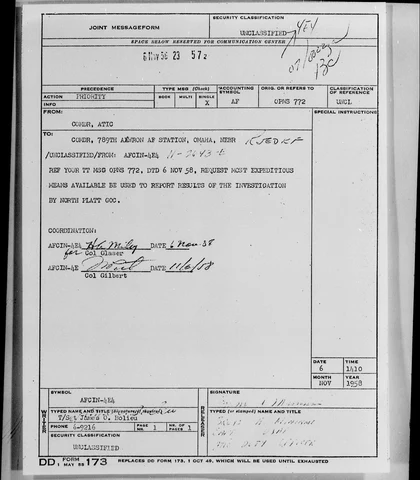 JOINT MESSAGEFORM
SECURITY CLASSIFICATION
UNCLASSIFIED
SPACE BELOW RESERVED FOR COMMUNICATION CENTER
6 Nov 58 23 57z
PRECEDENCE
TYPE MSG (Check)
ACCOUNTING SYMBOL
ORIG. OR REFERS TO
CLASSIFICATION OF REFERENCE
ACTION PRIORITY
BOOK MULTI SINGLE
X
AF
OPNS 772
UNCL
INFO
FROM:
SPECIAL INSTRUCTIONS
COMDR, ATIC
TO:
COMDR, 789TH AC&WRON AF STATION, OMAHA, NEBR
/UNCLASSIFIED/FROM: AFCIN-4E4
REF YOUR TT MSG OPNS 772, DTD 6 NOV 58, REQUEST MOST EXPEDITIOUS
MEANS AVAILABLE BE USED TO REPORT RESULTS OF THE INVESTIGATION
BY NORTH PLATT GOC.
COORDINATION:
AFCIN-4E4 DATE 6 Nov 58
for Col Glaser
AFCIN-4E DATE 11/6/58
Col Gilbert
DATE
TIME
6
1410
MONTH
YEAR
NOV
1958
SYMBOL
AFCIN-4E4
SIGNATURE
TYPED NAME AND TITLE (Signature, if required)
T/Sgt
TYPED (or stamped) NAME AND TITLE
PHONE
6-9216
PAGE NR. 1
NR. OF PAGES 1
SECURITY CLASSIFICATION
UNCLASSIFIED
DD FORM 1 MAY 55 173
REPLACES DD FORM 173, 1 OCT 49, WHICH WILL BE USED UNTIL EXHAUSTED